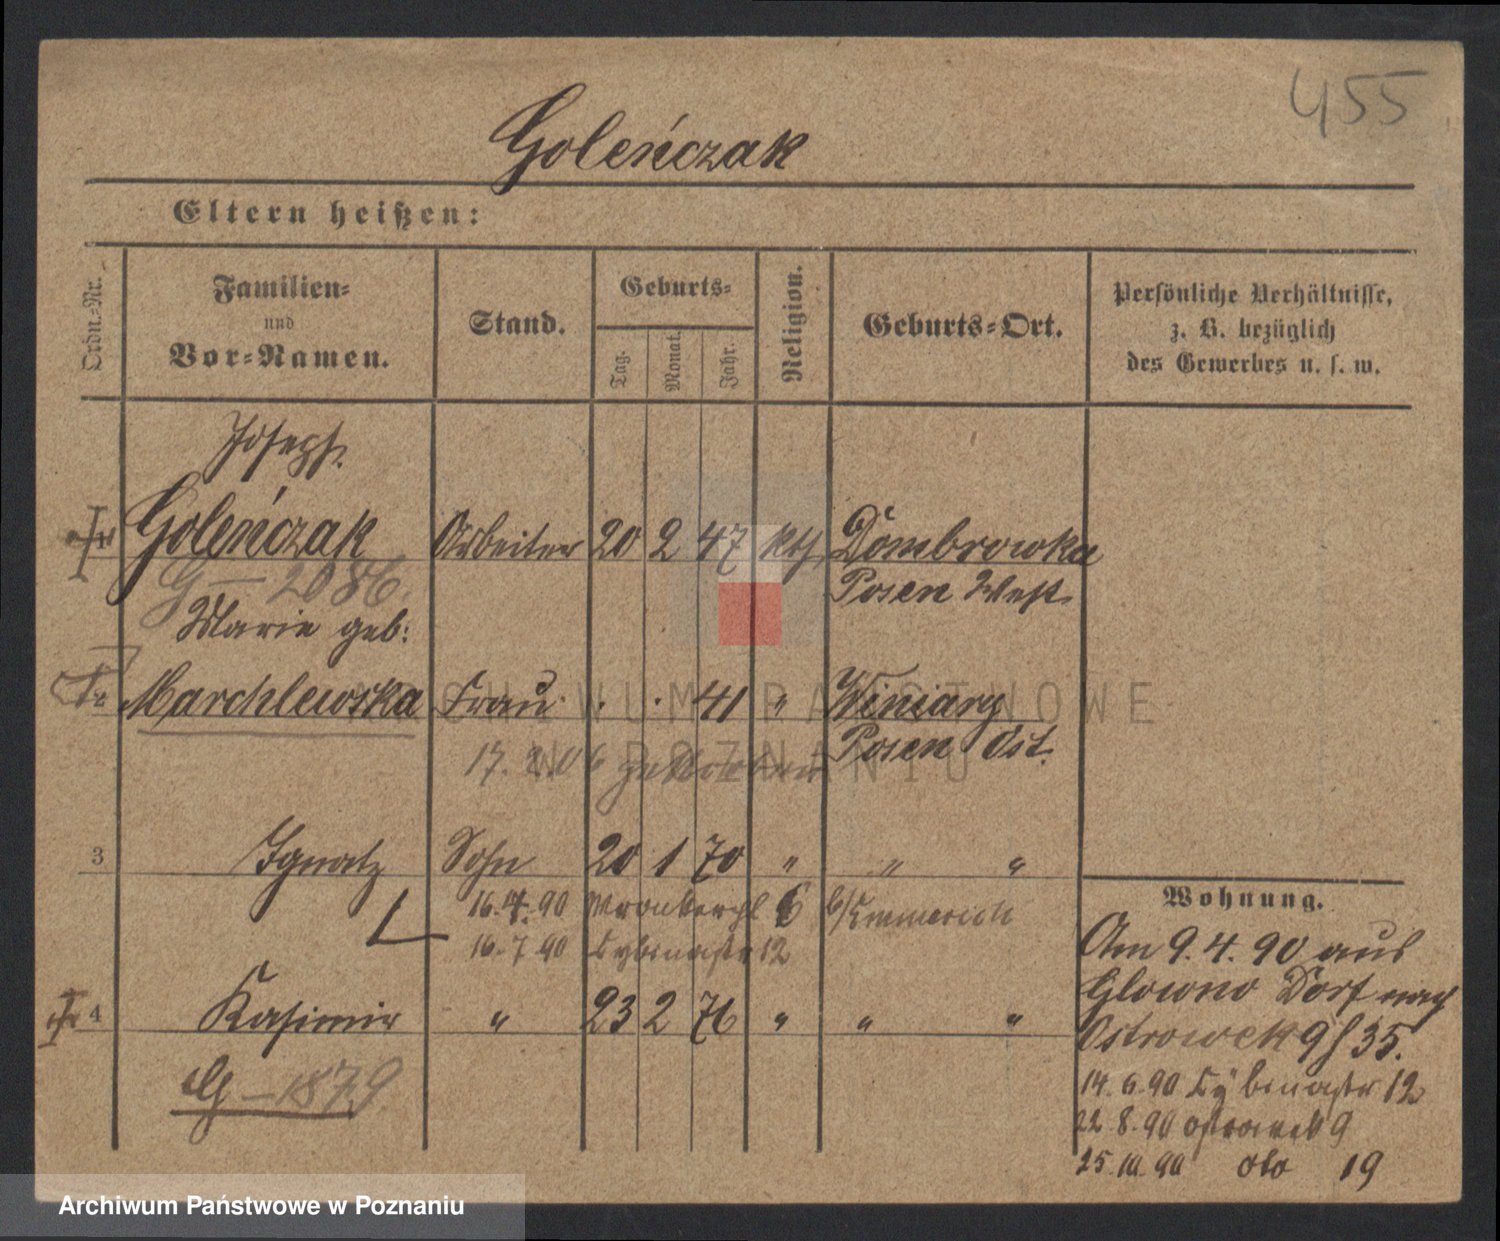 455
Goleńczak
Eltern heißen:
Ordn.-Nr.
Familien-
und
Vor-Namen.
Stand.
Geburts-
Tag.
Monat.
Jahr.
Religion.
Geburts-Ort.
Persönliche Verhältnisse,
z. B. bezüglich
des Gewerbes u. s. w.
Joseph
Goleńczak Arbeiter 20 2 47 kth. Dombrowka
G – 2086. Posen West.
Marie geb:
Marchlewska Frau · · 41 " Winiary
Posen Ost.
17. 06 gestorben
3 Ignatz Sohn 20 1 70 " " "
16.4.90 Wronkerpl 6 b/Emmerich
16.7.90 Cybinastr 12
4 Kasimir " 23 2 76 " " "
G – 1879
Wohnung.
Am 9.4.90 aus
Glowno Dorf nach
Ostrowek 9 35.
14.6.90 Cybinastr 12
22.8.90 Ostrowek 9
25.10.90 oto 19
ARCHIWUM PAŃSTWOWE
W POZNANIU
Archiwum Państwowe w Poznaniu